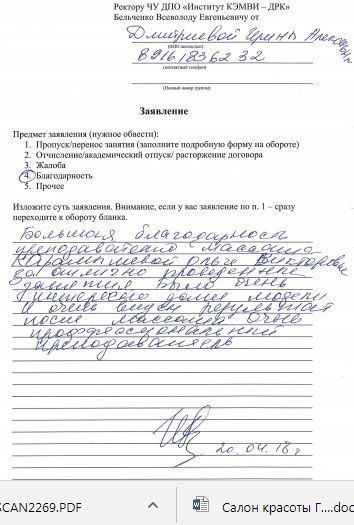 Ректору ЧУ ДПО «Институт КЭМВИ – ДРК»
Бельченко Всеволоду Евгеньевичу от
Дмитриевой Ирины
89161836232
(ФИО полностью)
(контактный телефон)
(Полный номер группы)
Заявление
Предмет заявления (нужное обвести):
1. Пропуск/перенос занятия (заполните подробную форму на обороте)
2. Отчисление/академический отпуск/ расторжение договора
3. Жалоба
4. Благодарность
5. Прочее
Изложите суть заявления. Внимание, если у вас заявление по п. 1 – сразу
переходите к обороту бланка.
Большая благодарность
преподавателю массажа
Ольге Викторовне
за отлично проведенные
занятия было очень
интересно даже модели
и очень виден результат
после массажа очень
профессиональный
преподаватель
20.04.18г
SCAN2269.PDF
Салон красоты Г....doc